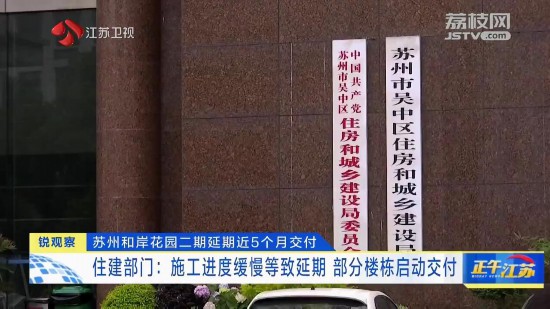 江苏卫视
荔枝网
JSTV.com
中国共产党
苏州市吴中区
住房和城乡建设局委员会
苏州市吴中区住房和城乡建设局
锐观察
苏州和岸花园二期延期近5个月交付
住建部门：施工进度缓慢等致延期 部分楼栋启动交付
正午江苏